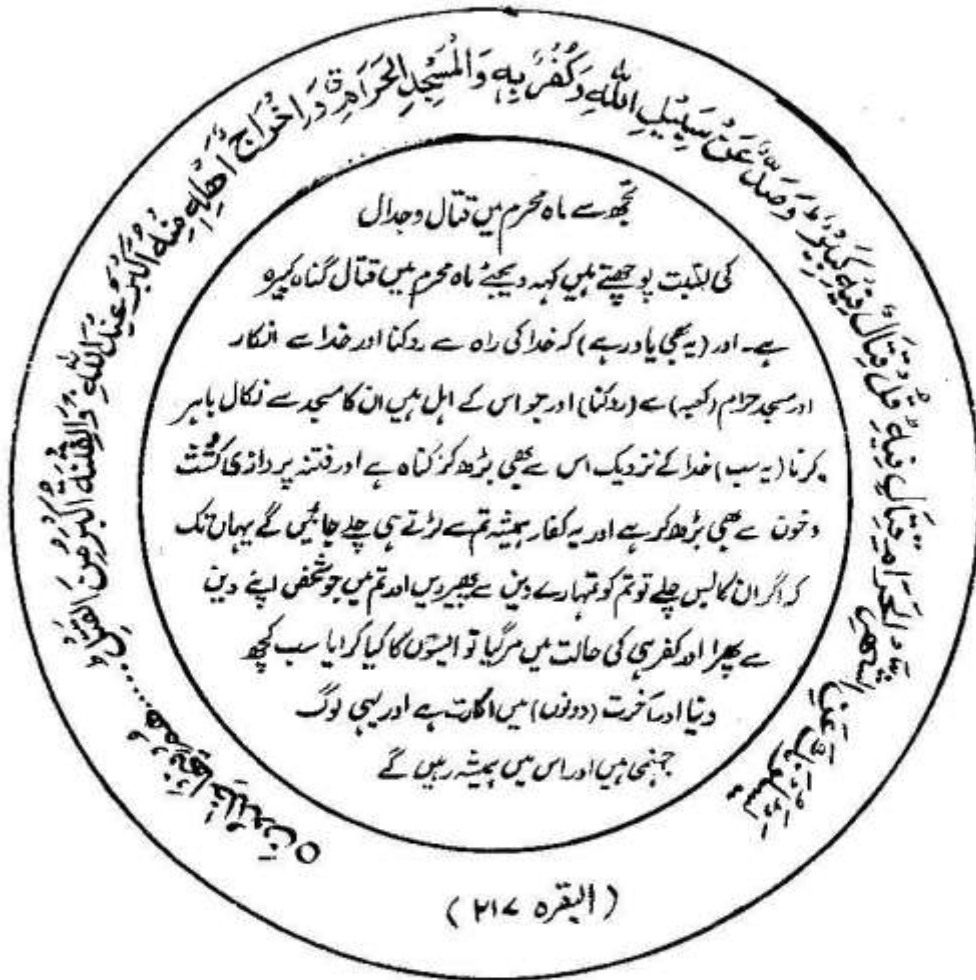 يَسْـَٔلُوْنَكَ عَنِ الشَّهْرِ الْحَرَامِ قِتَالٍ فِيْهِ قُلْ قِتَالٌ فِيْهِ كَبِيْرٌ وَصَدٌّ عَنْ سَبِيْلِ اللّٰهِ وَكُفْرٌۢ بِهٖ وَالْمَسْجِدِ الْحَرَامِ ق وَاِخْرَاجُ اَهْلِهٖ مِنْهُ اَكْبَرُ عِنْدَ اللّٰهِ وَالْفِتْنَةُ اَكْبَرُ مِنَ الْقَتْلِ ...... هُمْ فِيْهَا خٰلِدُوْنَ ○
تجھ سے ماہ محرم میں قتال و جدال
کی نسبت پوچھتے ہیں کہہ دیجئے ماہ محرم میں قتال گناہ کبیرہ
ہے۔ اور (یہ بھی یاد رہے) کہ خدا کی راہ سے روکنا اور خدا سے انکار
اور مسجد حرام (کعبہ) سے (روکنا) اور جو اس کے اہل ہیں ان کا مسجد سے نکال باہر
کرنا (یہ سب) خدا کے نزدیک اس سے بھی بڑھ کر گناہ ہے اور فتنہ پردازی کشت
و خون سے بھی بڑھ کر ہے اور یہ کفار ہمیشہ تم سے لڑتے ہی چلے جائیں گے یہاں تک
کہ اگر ان کا بس چلے تو تم کو تمہارے دین سے پھیر دیں اور تم میں جو شخص اپنے دین
سے پھرا اور کفر ہی کی حالت میں مر گیا تو ایسوں کا کیا کرایا سب کچھ
دنیا اور آخرت (دونوں) میں اکارت ہے اور یہی لوگ
جہنمی ہیں اور اس میں ہمیشہ رہیں گے
(البقرہ ۲۱۷)